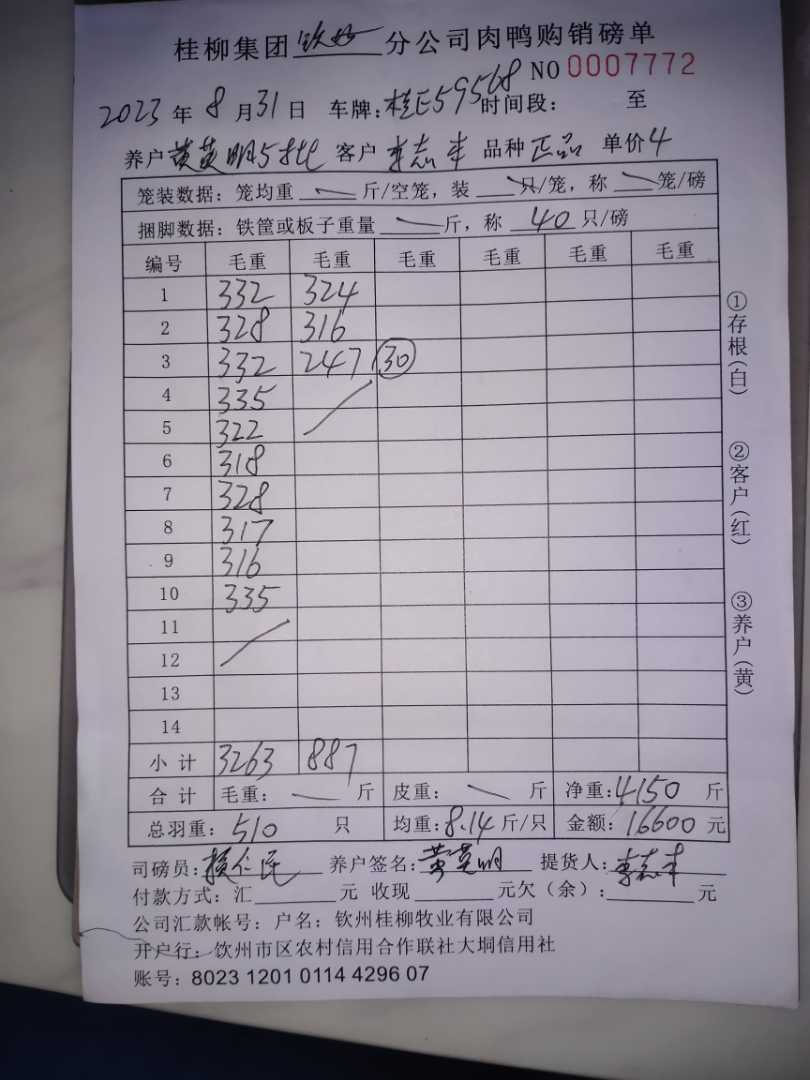 桂柳集团 钦州 分公司肉鸭购销磅单
NO 0007772
2023 年 8 月 31 日 车牌：桂E59568 时间段： 至
养户 黄英明5批 客户 李志丰 品种 正品 单价 4
笼装数据：笼均重 斤/空笼，装 只/笼，称 笼/磅
捆脚数据：铁筐或板子重量 斤，称 40 只/磅
编号 毛重 毛重 毛重 毛重 毛重 毛重
1 332 324
2 328 316
3 332 247 30
4 335
5 322
6 318
7 328
8 317
9 316
10 335
11
12
13
14
小计 3263 887
合计 毛重： 斤 皮重： 斤 净重：4150 斤
总羽重：510 只 均重：8.14 斤/只 金额：16600 元
司磅员： 养户签名：黄英明 提货人：李志丰
付款方式：汇 元 收现 元欠（余）： 元
公司汇款帐号：户名：钦州桂柳牧业有限公司
开户行：钦州市区农村信用合作联社大垌信用社
账号：8023 1201 0114 4296 07
①存根（白）
②客户（红）
③养户（黄）